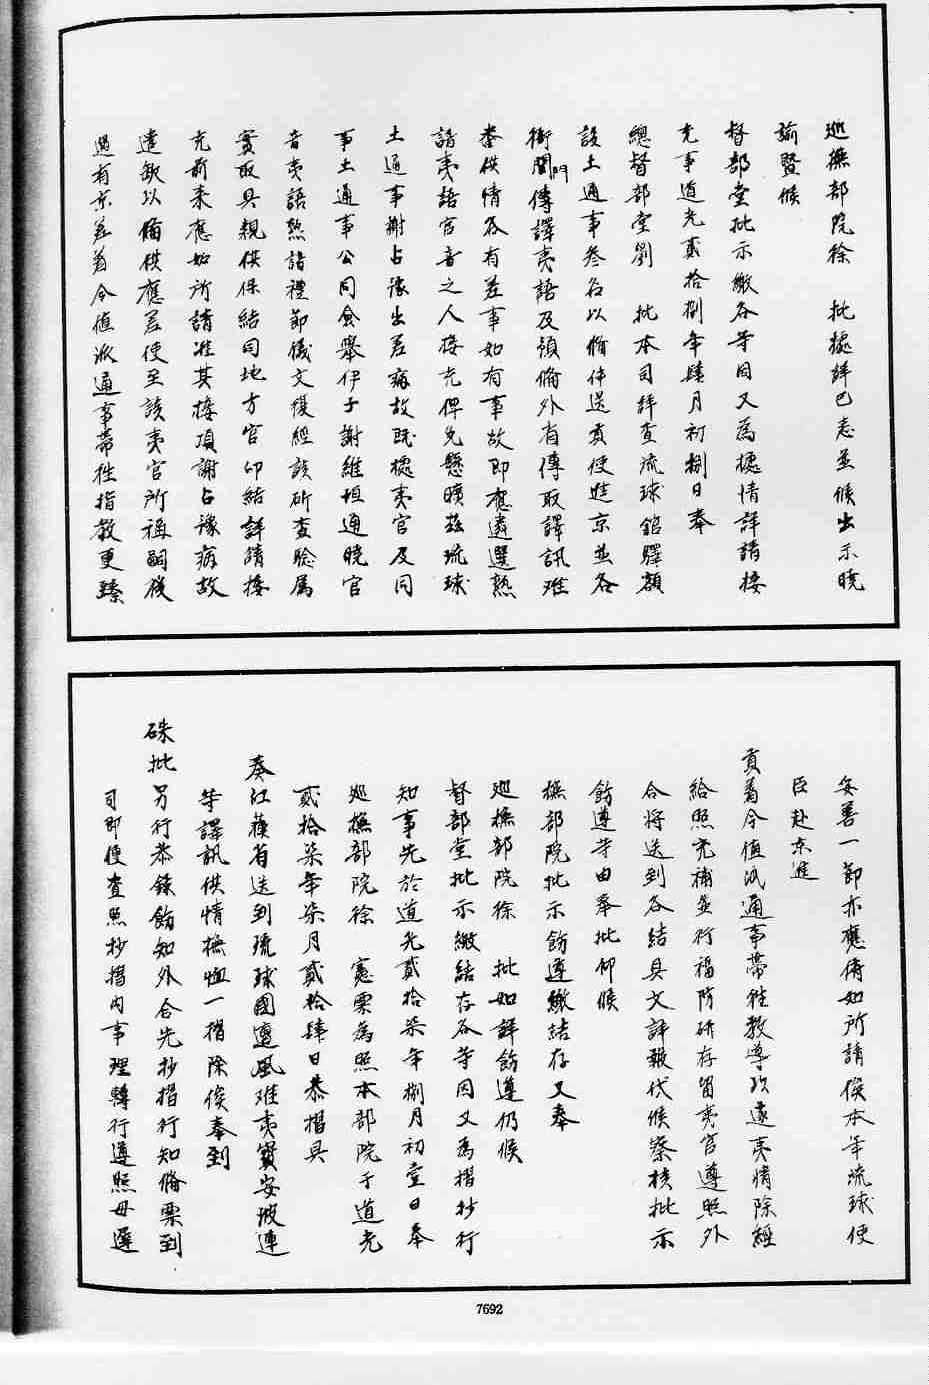 巡撫部院徐　批據詳已悉並候出示曉
諭暨候
督部堂批示繳各等因又為據情詳請接
充事道光貳拾捌年肆月初捌日奉
總督部堂劉　批本司詳查流球館驛額
設土通事叁名以備伴送貢使進京並各
衙門傳譯夷語及預備外省傳取譯訊难
番供情各有差事如有事故即應遴選熟
諳夷語官音之人接充俾免懸曠茲琉球
土通事謝占豫出差病故既據夷官及同
事土通事公同僉舉伊子謝維垣通曉官
音夷語熟諳禮節儀文復經該所查驗属
實取具親供保結同地方官印結詳請接
充前来應如所請准其接項謝占豫病故
遺缺以備供應差使至該夷官所禀嗣後
遇有京差着令值派通事帶往指教更臻
妥善一節亦應俯如所請俟本年流球使
臣赴京進
貢着令值派通事帶往教導以遂夷情除經
給照充補並行福防研存留夷官遵照外
合將送到各結具文詳報代候察核批示
飭遵等由奉批仰候
撫部院批示飭遵繳結存又奉
巡撫部院徐　批如詳飭遵仍候
督部堂批示繳結存各等因又為摺抄行
知事先於道光貳拾柒年捌月初壹日奉
巡撫部院徐　憲票為照本部院于道光
貳拾柒年柒月貳拾肆日恭摺具
奏江蘇省送到琉球國遭風难夷寶安坡連
等譯訊供情撫恤一摺除俟奉到
硃批另行恭錄飭知外合先抄摺行知備票到
司即便查照抄摺内事理轉行遵照毋遲
7692